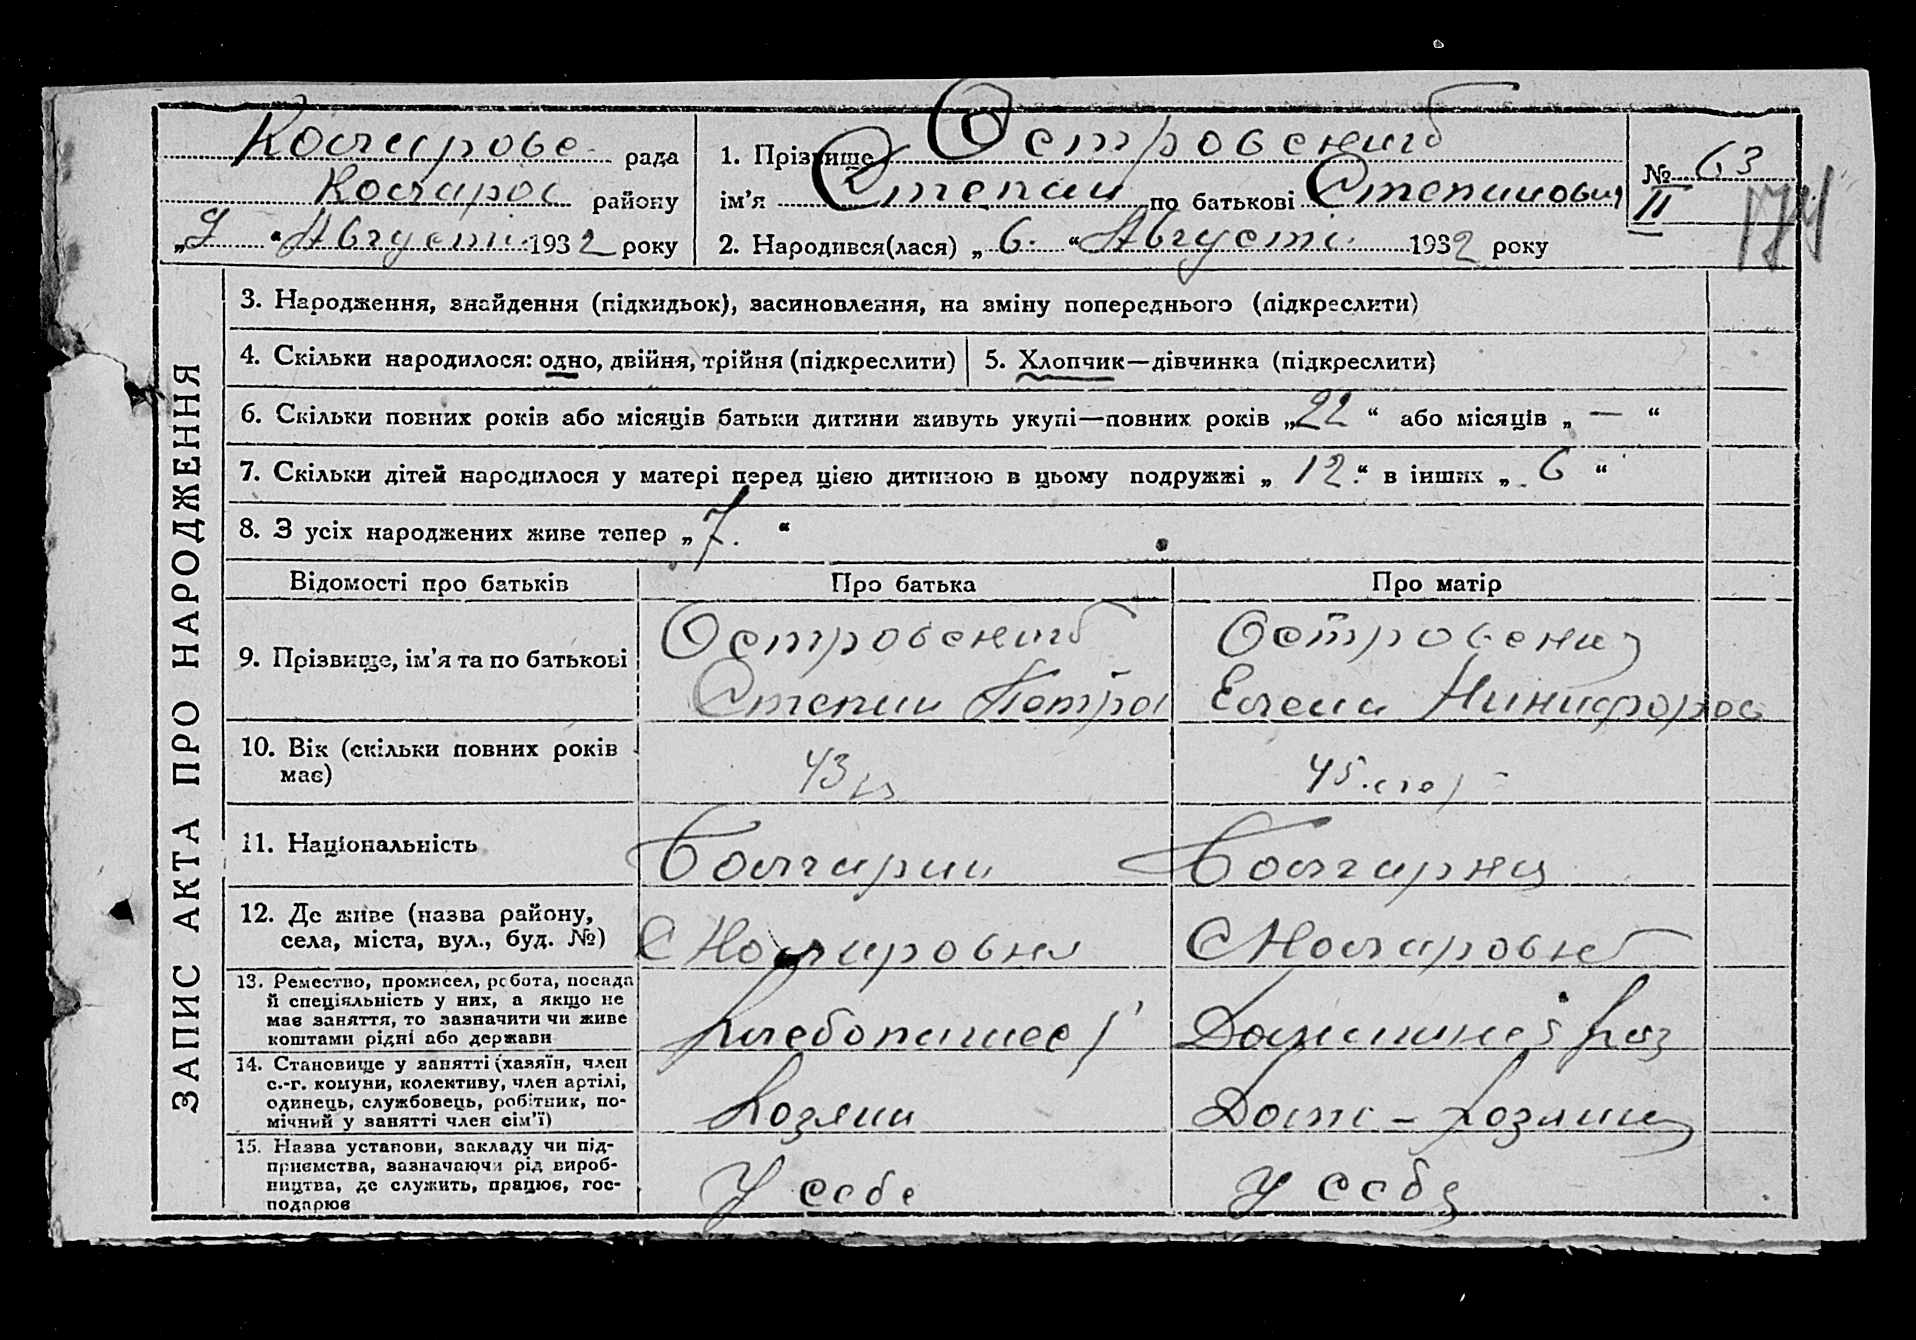 Коларове рада
Коларос району
„9“ Августі 1932 року
1. Прізвище Островский
ім’я Степан по батькові Степанович
2. Народився(лася) „6.“ Августі 1932 року
№ 63
II
174
ЗАПИС АКТА ПРО НАРОДЖЕННЯ
3. Народження, знайдення (підкидьок), засиновлення, на зміну попереднього (підкреслити)
4. Скільки народилося: одно, двійня, трійня (підкреслити)
5. Хлопчик—дівчинка (підкреслити)
6. Скільки повних років або місяців батьки дитини живуть укупі—повних років „22“ або місяців „—“
7. Скільки дітей народилося у матері перед цією дитиною в цьому подружжі „12.“ в інших „6“
8. З усіх народжених живе тепер „7.“
Відомості про батьків
Про батька
Про матір
9. Прізвище, ім’я та по батькові
Островский
Степан Петро
Островска
Елена Никифоров
10. Вік (скільки повних років
має)
43
45
11. Національність
Болгарин
Болгарка
12. Де живе (назва району,
села, міста, вул., буд. №)
С Коларовка
С Коларовке
13. Ремество, промисел, робота, посада
й спеціяльність у них, а якщо не
має заняття, то зазначити чи живе
коштами рідні або держави
Хлебопашес
Домашнея хоз
14. Становище у занятті (хазяїн, член
с.-г. комуни, колективу, член артілі,
одинець, службовець, робітник, по-
мічний у занятті член сім’ї)
Хозяин
Дом-хозяика
15. Назва установи, закладу чи під-
приємства, зазначаючи рід вироб-
ництва, де служить, працює, гос-
подарює
У себе
У себе